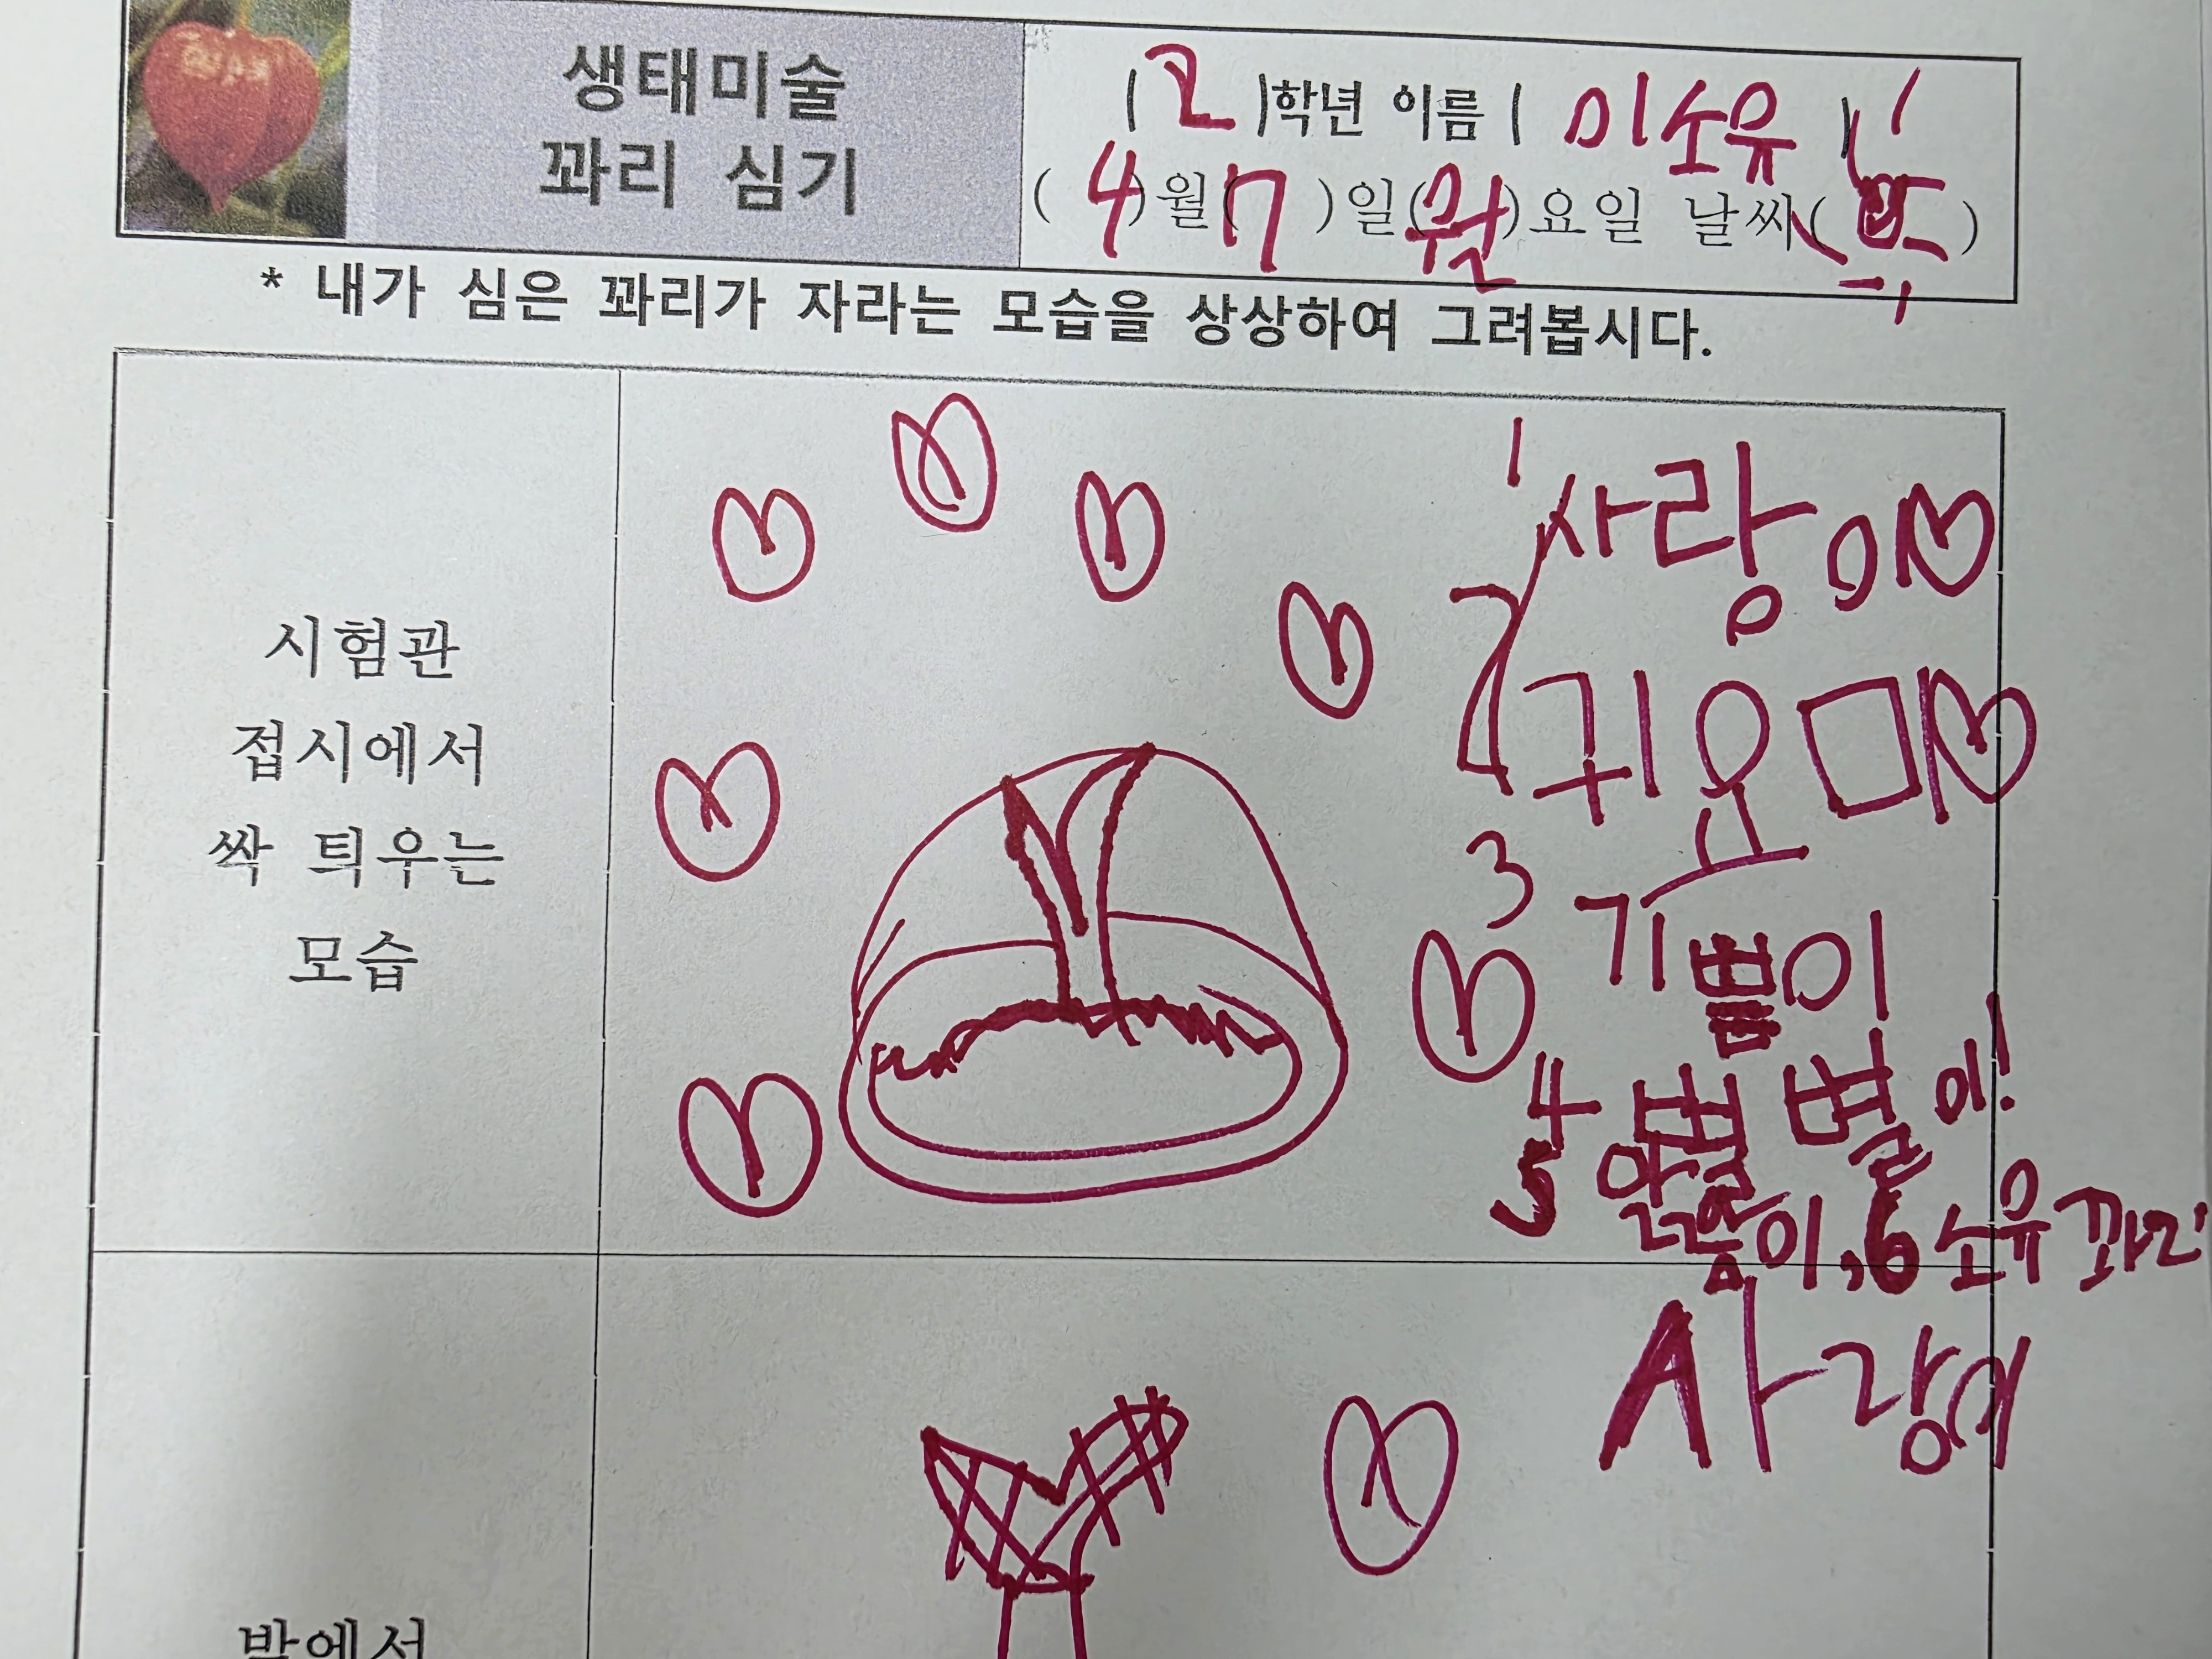 생태미술
꽈리 심기
(2)학년 이름( 이소유 )
( 4 )월( 7 )일(월)요일 날씨( )
* 내가 심은 꽈리가 자라는 모습을 상상하여 그려봅시다.
시험관
접시에서
싹 틔우는
모습
1 사랑이♡
2 귀요미♡
3 기쁨이
4 뿔뿔이!
5 알콩이, 6 소유꽈리
사랑이
밖에서